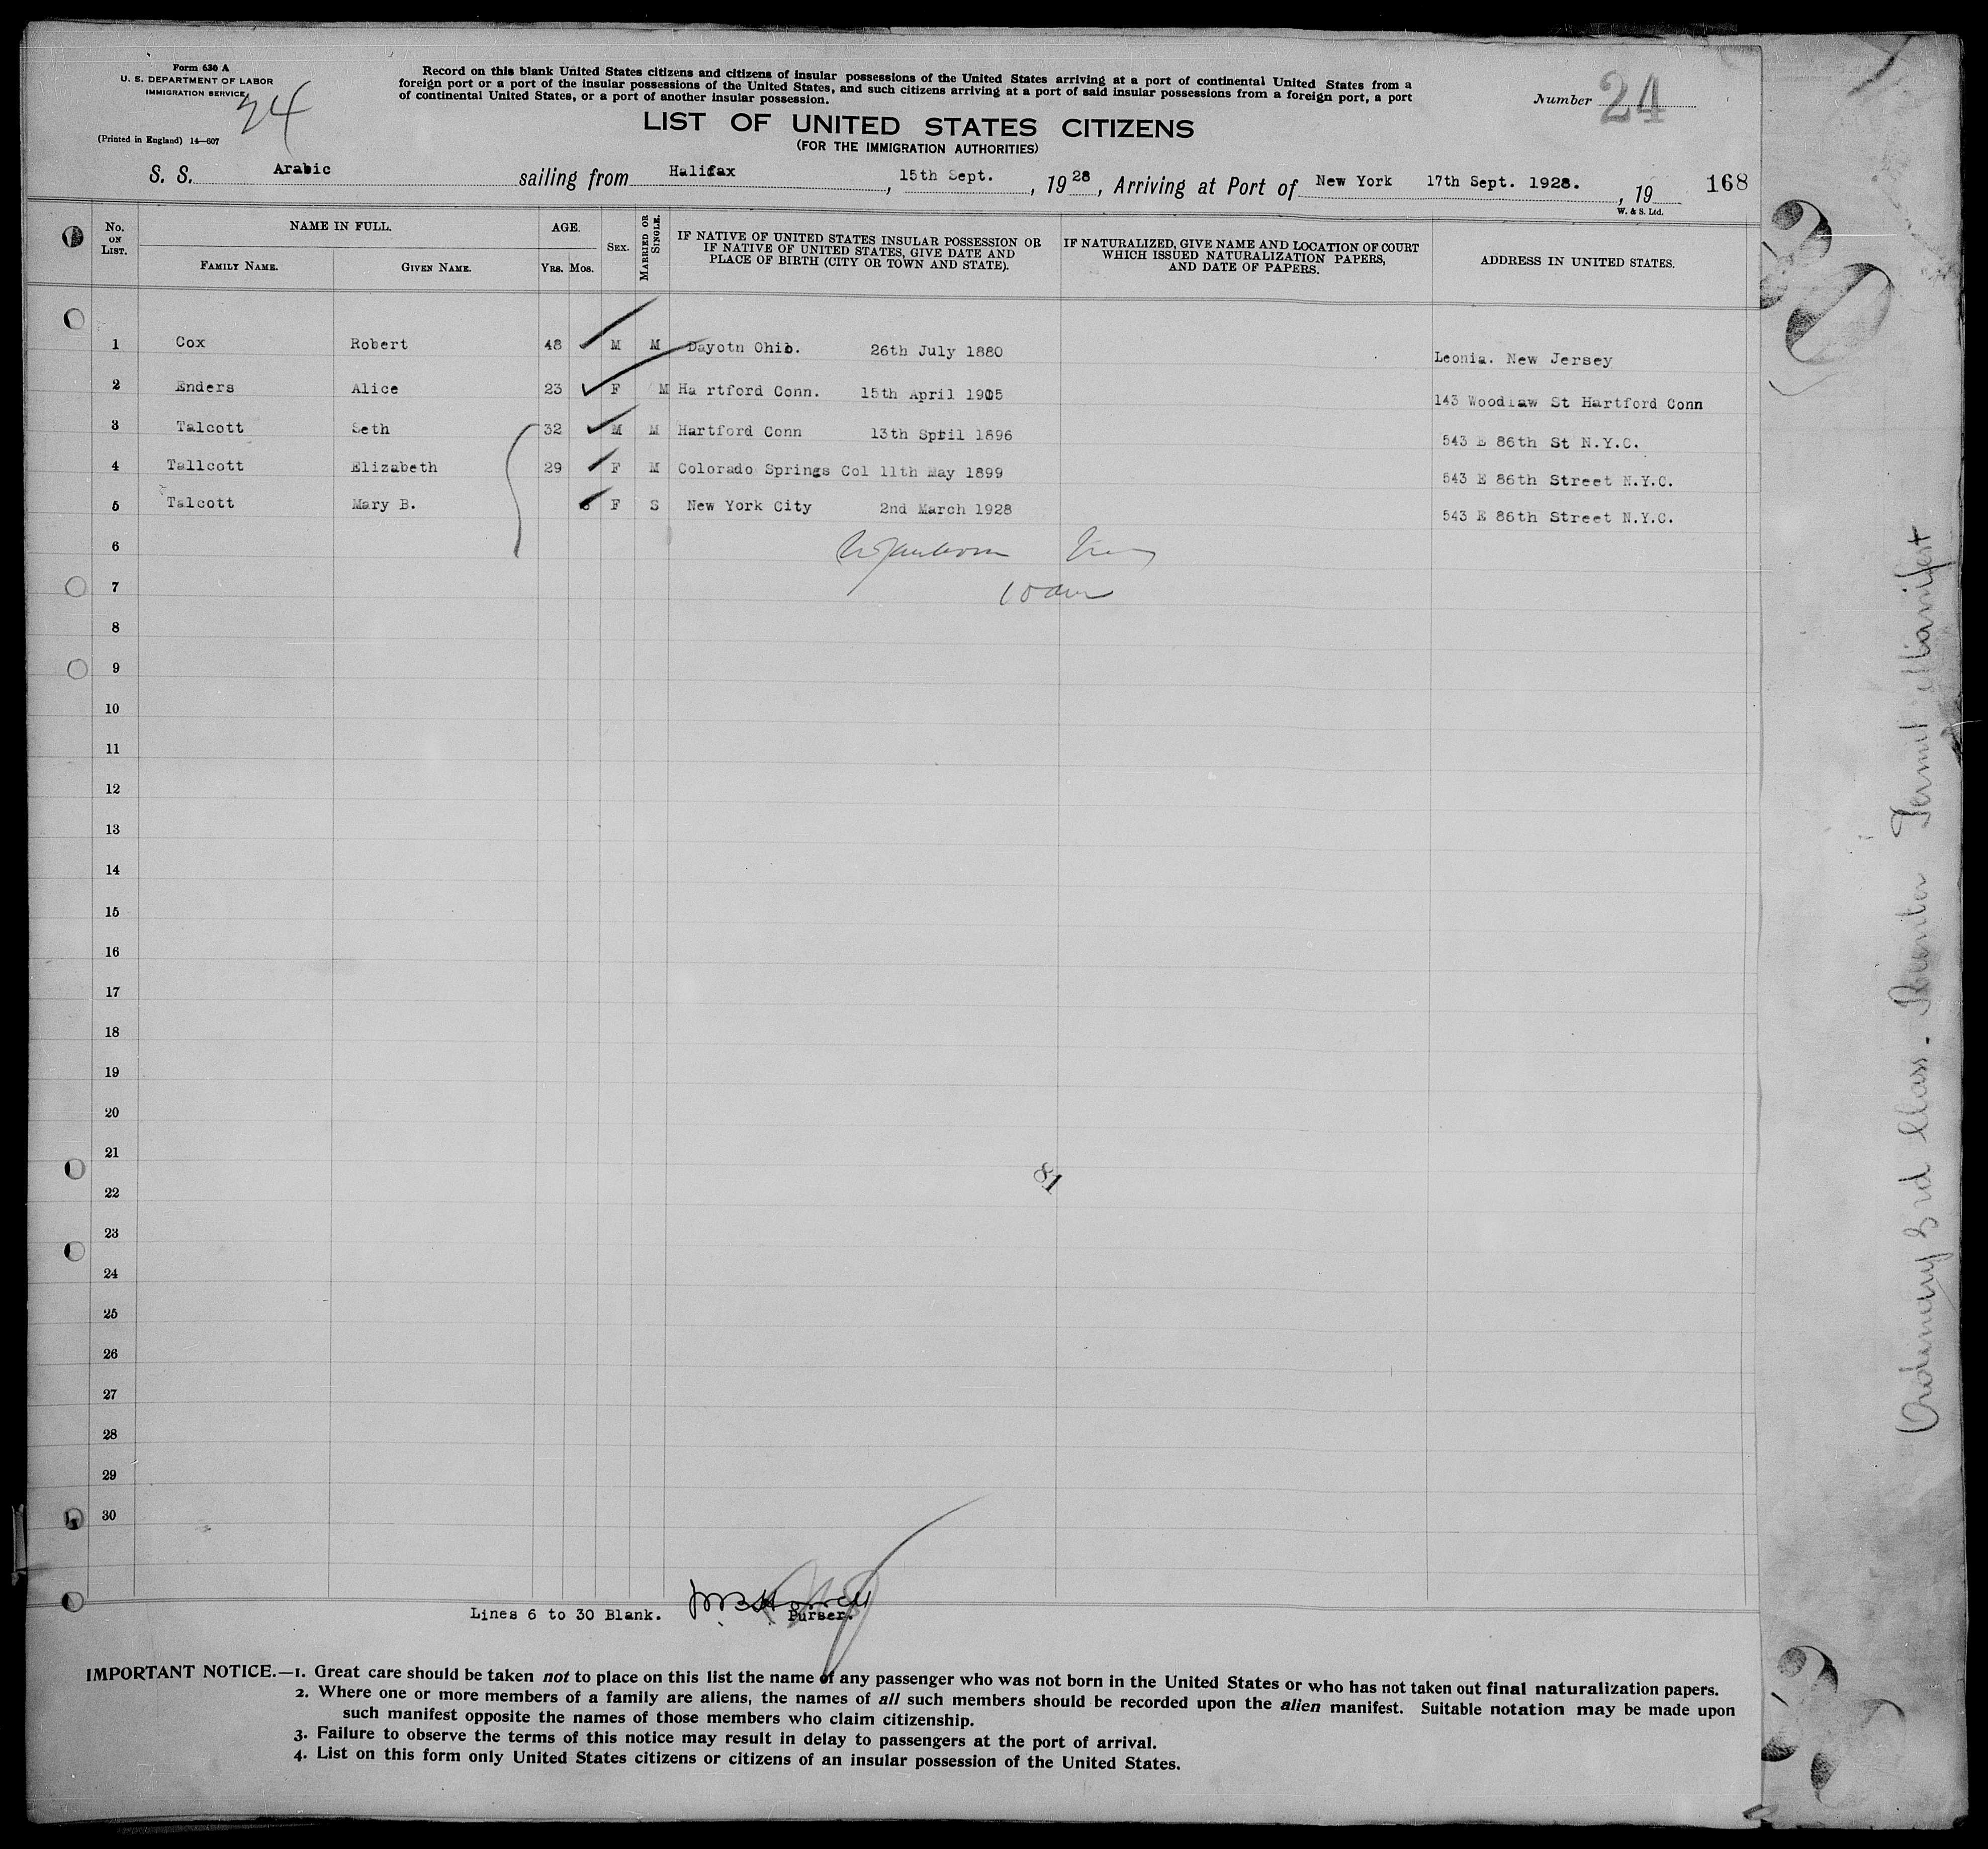 Form 630 A
U. S. DEPARTMENT OF LABOR
IMMIGRATION SERVICE
24
(Printed in England) 14—607
Record on this blank United States citizens and citizens of insular possessions of the United States arriving at a port of continental United States from a
foreign port or a port of the insular possessions of the United States, and such citizens arriving at a port of said insular possessions from a foreign port, a port
of continental United States, or a port of another insular possession.
Number 24
LIST OF UNITED STATES CITIZENS
(FOR THE IMMIGRATION AUTHORITIES)
S. S. Arabic sailing from Halifax, 15th Sept., 1928, Arriving at Port of New York 17th Sept. 1928., 19 168
W. & S. Ltd.
No. ON LIST. NAME IN FULL. FAMILY NAME. GIVEN NAME. AGE. YRS. MOS. SEX. MARRIED OR SINGLE. IF NATIVE OF UNITED STATES INSULAR POSSESSION OR IF NATIVE OF UNITED STATES, GIVE DATE AND PLACE OF BIRTH (CITY OR TOWN AND STATE). IF NATURALIZED, GIVE NAME AND LOCATION OF COURT WHICH ISSUED NATURALIZATION PAPERS, AND DATE OF PAPERS. ADDRESS IN UNITED STATES.
1 Cox Robert 48 M M Dayotn Ohio. 26th July 1880 Leonia. New Jersey
2 Enders Alice 23 F M Ha rtford Conn. 15th April 1905 143 Woodlaw St Hartford Conn
3 Talcott Seth 32 M M Hartford Conn 13th Spril 1896 543 E 86th St N.Y.C.
4 Tallcott Elizabeth 29 F M Colorado Springs Col 11th May 1899 543 E 86th Street N.Y.C.
5 Talcott Mary B. 6 F S New York City 2nd March 1928 543 E 86th Street N.Y.C.
6
7 10 am
8
9
10
11
12
13
14
15
16
17
18
19
20
21
81
22
23
24
25
26
27
28
29
30
Lines 6 to 30 Blank. Purser.
IMPORTANT NOTICE.—1. Great care should be taken not to place on this list the name of any passenger who was not born in the United States or who has not taken out final naturalization papers.
2. Where one or more members of a family are aliens, the names of all such members should be recorded upon the alien manifest. Suitable notation may be made upon
such manifest opposite the names of those members who claim citizenship.
3. Failure to observe the terms of this notice may result in delay to passengers at the port of arrival.
4. List on this form only United States citizens or citizens of an insular possession of the United States.
Ordinary 3rd Class. Manifest